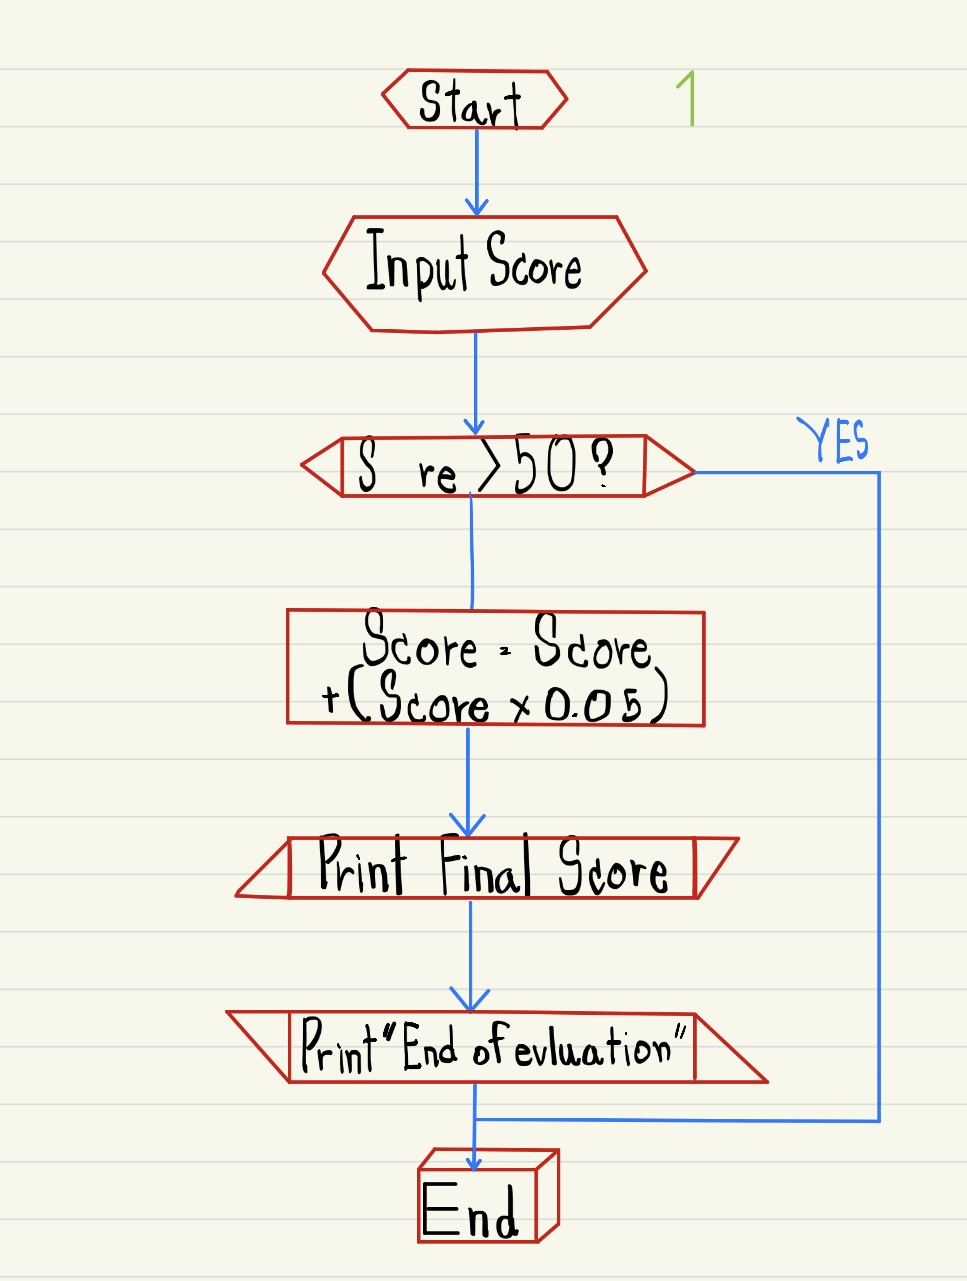 Start
1
Input Score
YES
S re >50?
Score = Score
+(Score x 0.05)
Print Final Score
Print "End of evluation"
End